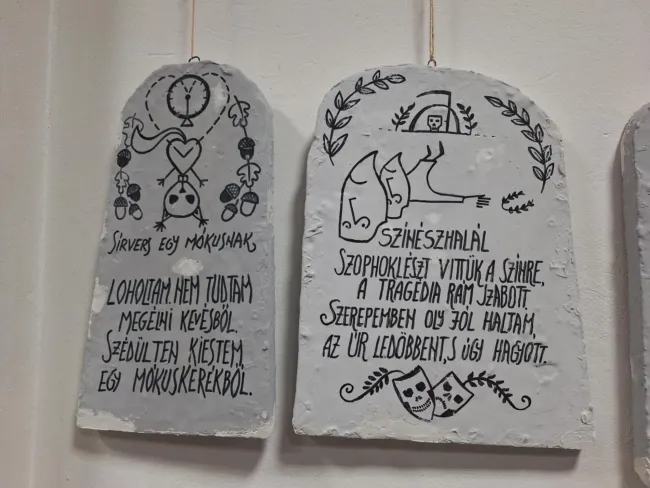 SÍRVERS EGY MÓKUSNAK
LOHOLTAM, NEM TUDTAM
MEGÉLNI KEVÉSBŐL.
SZÉDÜLTEN KIESTEM,
EGY MÓKUSKERÉKBŐL.
SZÍNÉSZHALÁL
SZOPHOKLÉSZT VITTÜK A SZÍNRE,
A TRAGÉDIA RÁM SZABOTT.
SZEREPEMBEN OLY JÓL HALTAM,
AZ ÚR LEDÖBBENT, S ÚGY HAGYOTT.